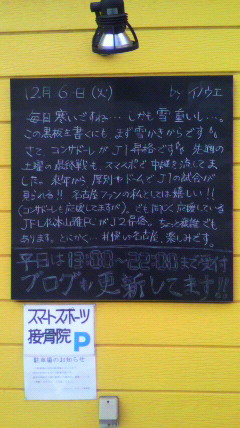 12月6日(火) by イノウエ
毎日寒いですね… しかも雪重いし…。
この黒板を書くにも まず雪かきからです
さて、コンサドーレが J1昇格です 先週の
土曜の最終戦も、スマスポで中継を流してま
した。来年から 厚別やドームで J1の試合が
見られる!! 名古屋ファンの私としては嬉しい!!
(コンサドーレも応援してますが)、でも同じく応援している
JFL松本山雅FCがJ2昇格。ちょっと複雑でも
あります。とにかく…札幌vs名古屋、楽しみです。
平日は13:00〜22:00まで受付
ブログも更新してます!!
スマートスポーツ
接骨院 P
駐車場のお知らせ